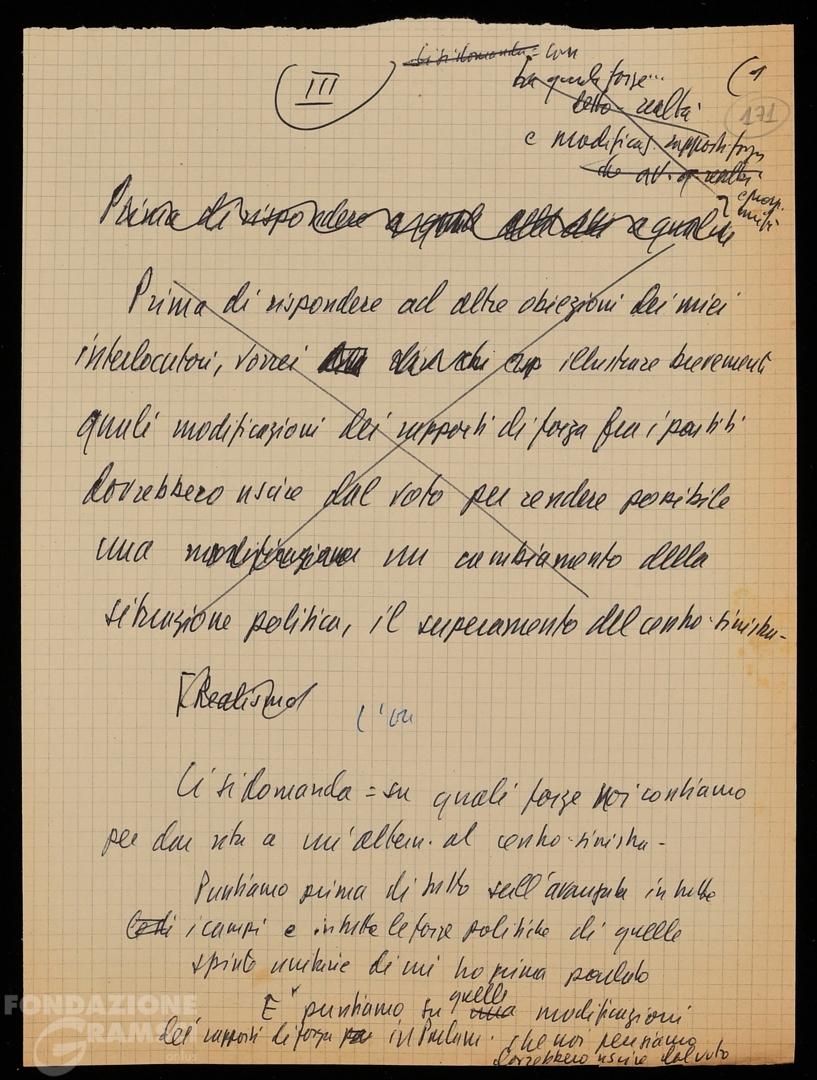 III
Ci si domanda = con
tra quali forze...
(1
171
detto - realtà
e modificaz. rapporti forza
Prima di rispondere a quali
Prima di rispondere ad altre obiezioni dei miei
interlocutori, vorrei illustrare brevemente
quali modificazioni dei rapporti di forza fra i partiti
dovrebbero uscire dal voto per rendere possibile
una modificazione un cambiamento della
situazione politica, il superamento del centro-sinistra-
[Realismo
Ci si domanda = su quali forze noi contiamo
per dar vita a un'altern. al centro-sinistra-
Puntiamo prima di tutto sull'avanzata in tutti
i campi e in tutte le forze politiche di quelle
spinte unitarie di cui ho prima parlato
E puntiamo su quelle modificazioni
dei rapporti di forza in Parlam. che noi pensiamo
dovrebbero uscire dal voto
FONDAZIONE
GRAMSCI
onlus